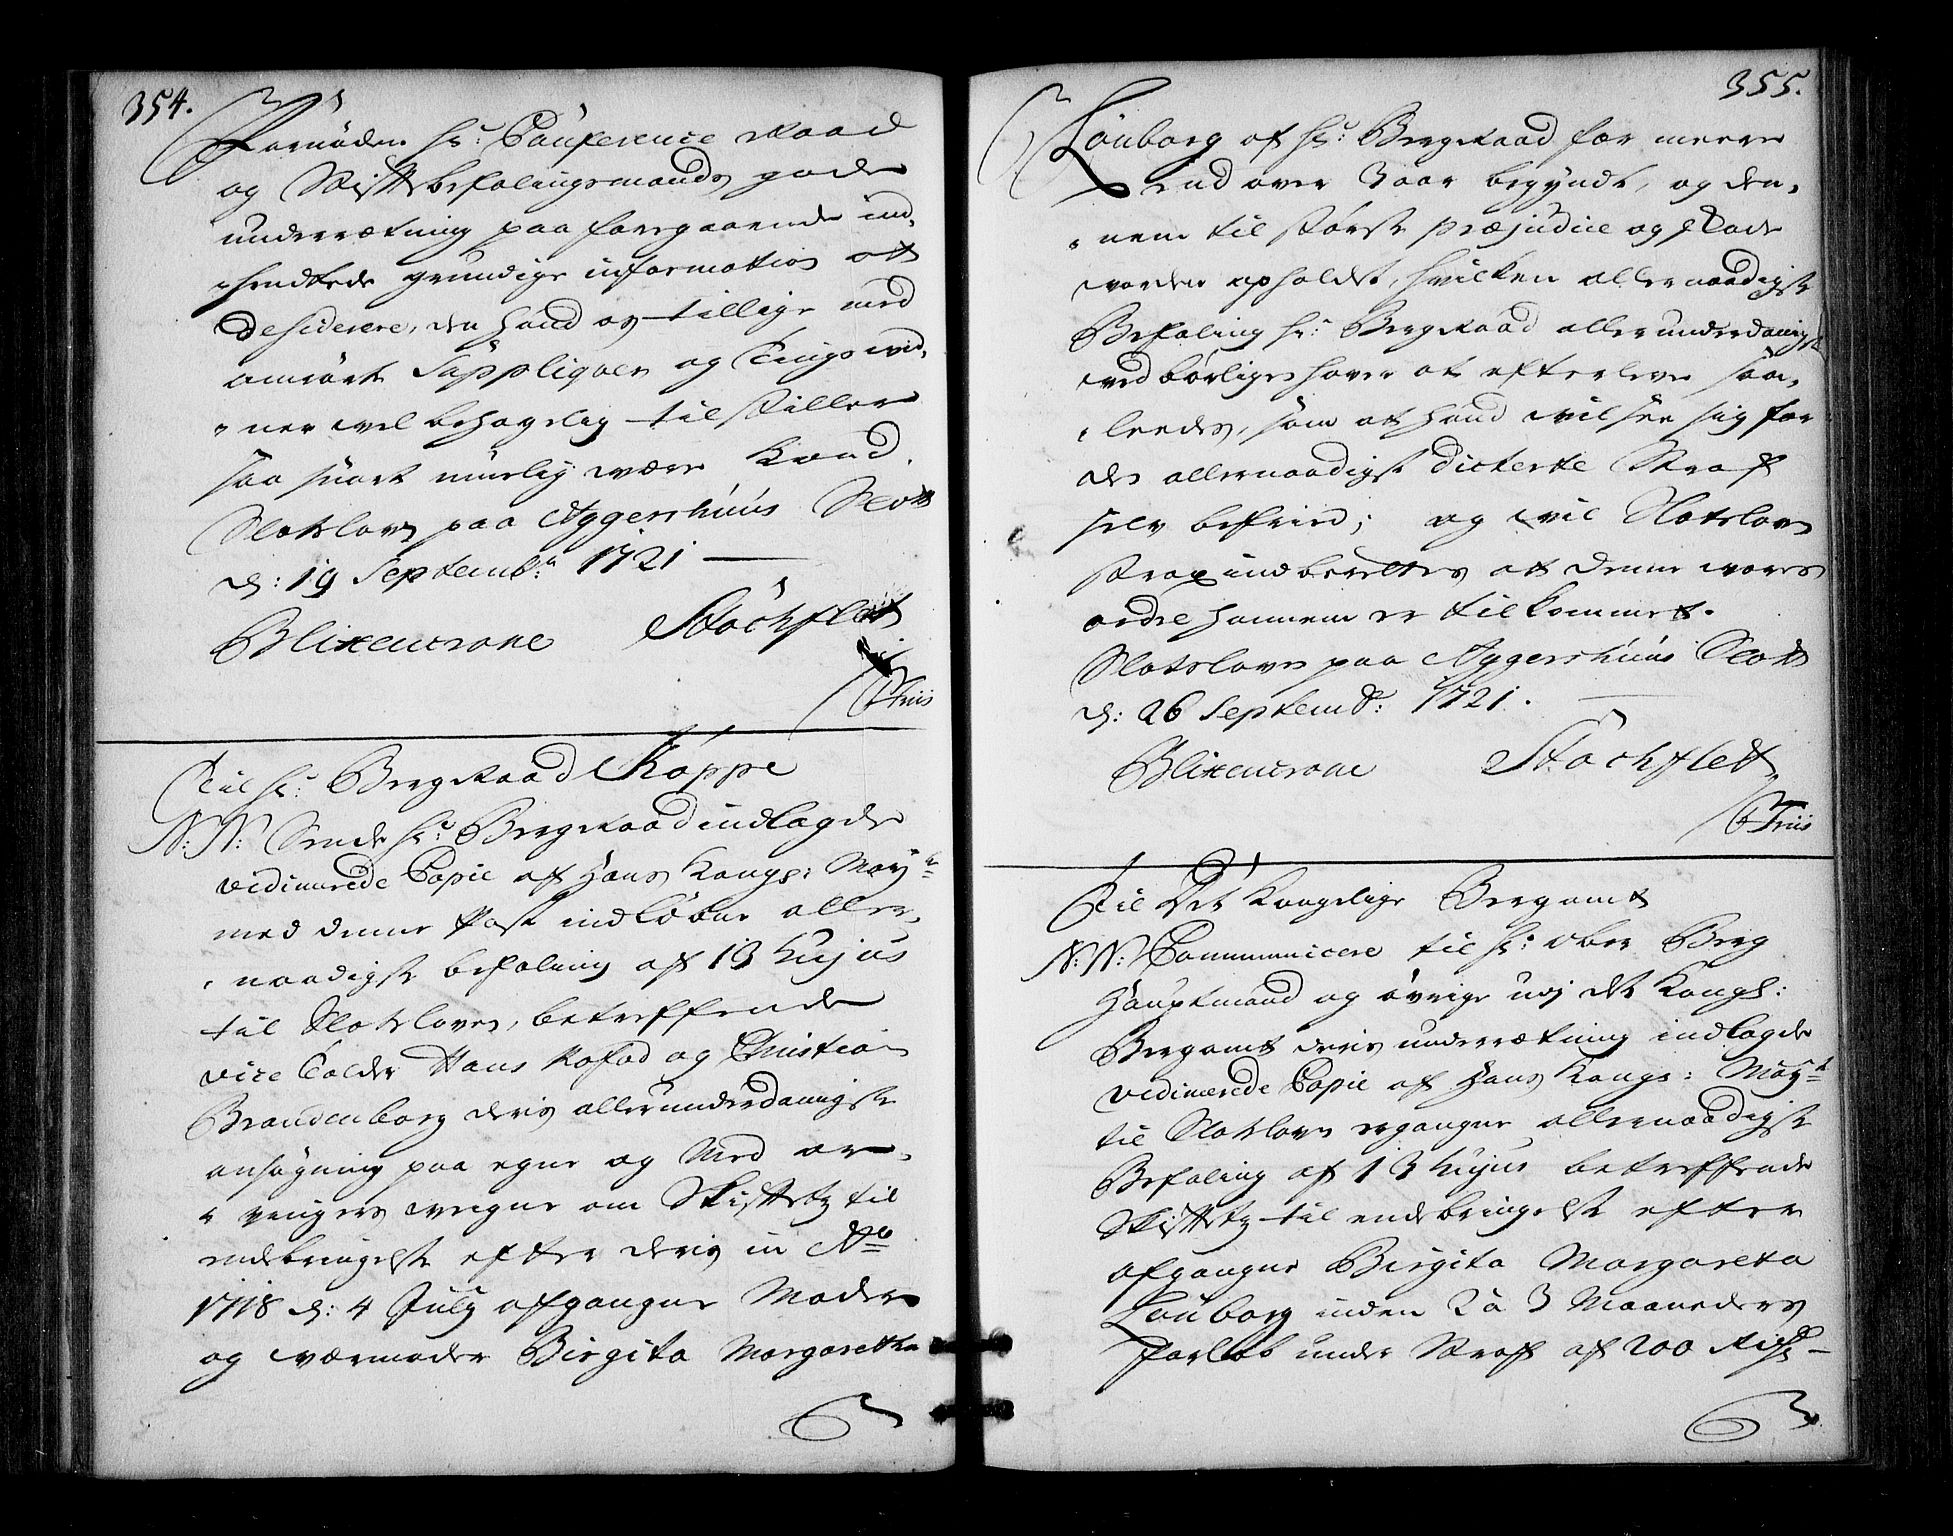 354.
Fornøden Hr: Conference Raad
og Stiftbefalingsmands gode
underrætning paa foregaaende ind,
,hendtede grundige information at
desiderere, den hand os tillige med
omrørte Suppliqver og Tingsvid,
,ner vel behagelig tilstiller
saa snart muelig være kand.
Slotsloven paa Aggershuus Slott
d: 19 Septembr: 1721
Blixencrone Stochflett
Friis
Til Hr: Bergraad Schoppe
N: N: Sende Hr: Bergraad indlagde
vedimerede Copie af Hans Kongs: Mayts
med denne Post indløbne aller,
,naadigste befaling af 13 hujus
til Slotsloven, betreffende
vice Colder Hans Rofod og Christian
Brandenborg deris allerunderdanigste
ansøgning paa egne og Med ar,
,vingers vegne om Skiftets til
endebringelse efter deris in Ao
1718 d: 4 July afgangne Moder
og værmoder Birgita Margaretha
355.
Louborg af Hr: Bergraad for meere
end over 3 aar begyndt, og den,
,nem til største præjudice og skade
worden opholdet, hvilken allernaadigste
Befaling Hr: Bergraad allerunderdanigst
vedbørligen haver at efterleve saa,
,leedes, som at hand vil see sig for
den allernaadigst dicterte Straf
selv befried; og vil Slotsloven
strax indberettes at denne vores
ordre hannem er tilkommet.
Slotsloven paa Aggershuus Slott
d: 26 Septembr: 1721.
Blixencrone Stochflett
Friis
Til Det Kongelige Bergamt
N: N: Communicere til Hr: ober Berg
Hauptmand og øvrige udj det Kongl:
Bergamt deris underrætning indlagde
vedimerede Copie af Hans Kongs: Mayts
til Slotsloven ergangne allernaadigste
Befaling af 13 hujus betreffende
Skiftets til endebringelse efter
afgangne Birgita Margareta
Louborg inden 2 à 3 Maaneders
forløb under Straf af 200 Rixd